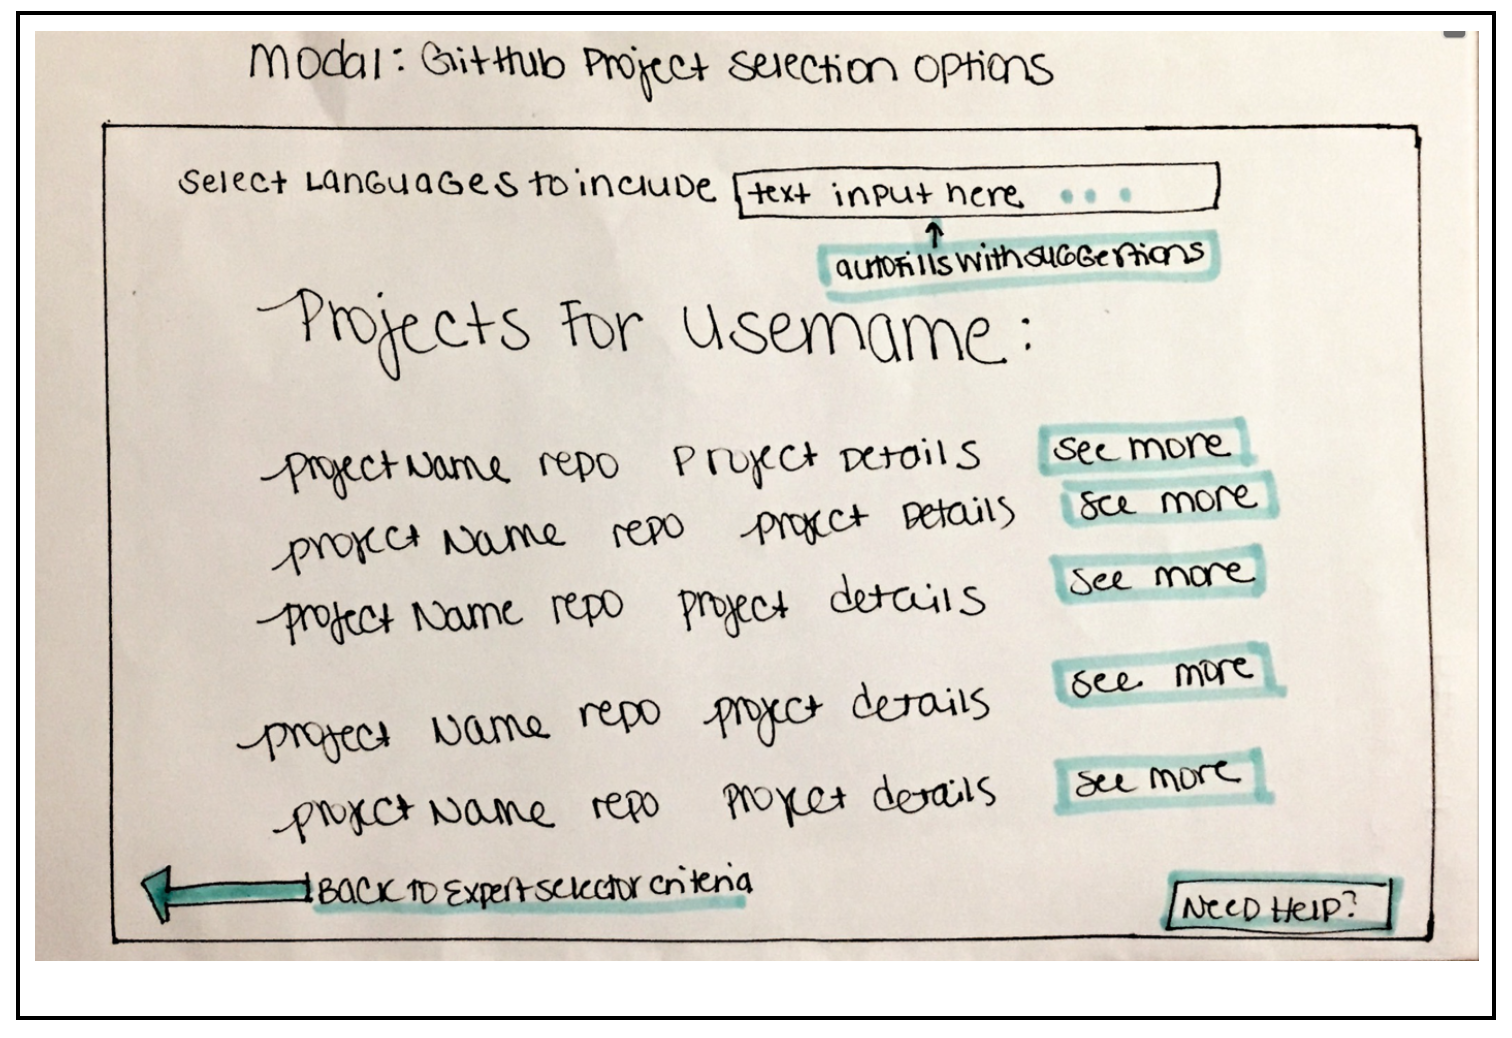 Modal: GitHub Project Selection Options
Select Languages to include text input here ...
autofills with suggestions
Projects For Username:
project Name repo Project Details see more
project Name repo project Details see more
project Name repo project details see more
project Name repo project details see more
project Name repo project details see more
BACK TO Expert selector criteria
NEED HELP?